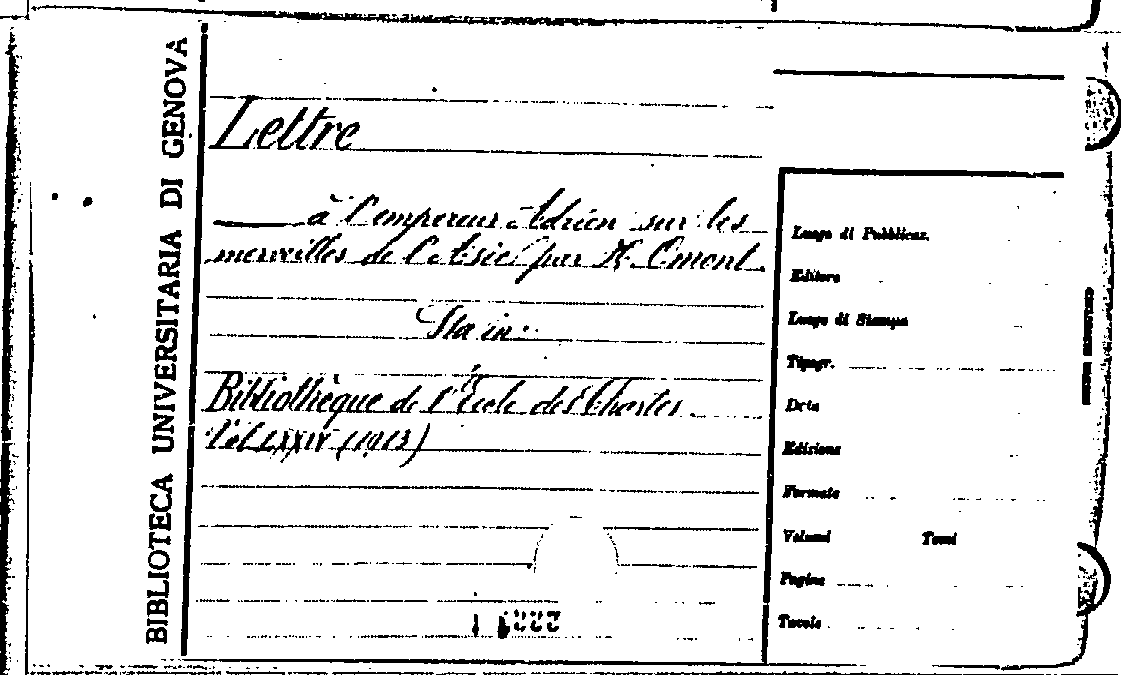 BIBLIOTECA UNIVERSITARIA DI GENOVA
Lettre
à l'empereur Adrien sur les
merveilles de l'Asie / par H. Omont.
Sta in:
Bibliothèque de l'École des Chartes
Vol. LXXIV (1913)
Luogo di Pubblicaz.
Editore
Luogo di Stampa
Tipogr.
Data
Edizione
Formato
Volumi Tomi
Pagine
Tavole